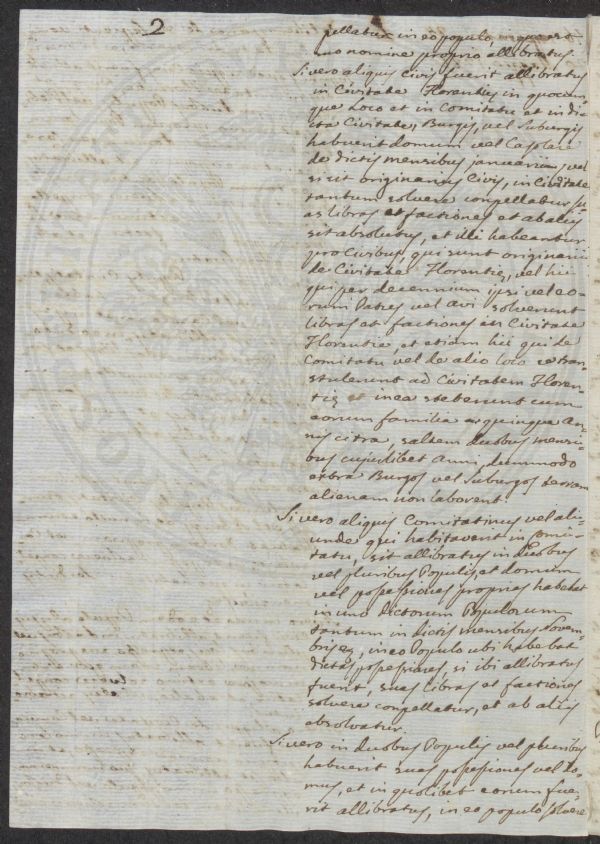 2
pellatur in eo populo, in quo est
suo nomine proprio allibratus.
Si vero aliquis Civis fuerit allibratus
in Civitate Florentiæ in quocum-
que Loco et in Comitatu et in di-
cta Civitate, Burgis, vel Suburgis
habuerit domum vel Casolare
de dictis mensibus januarii, vel
si sit originarius Civis, in Civitate
tantum solvere compellatur su-
as libras et factiones et ab aliis
sit absolutus, et illi habeantur
pro Civibus, qui sunt originarii
de Civitate Florentiæ, vel hii
qui per decennium ipsi vel eo-
rum Patres vel avi solverunt
libras et factiones in Civitate
Florentiæ, et etiam hii qui de
Comitatu vel de alio loco se tran-
stulerunt ad Civitatem Floren-
tiæ et in ea steterunt cum
eorum familia a quinque An-
nis citra, saltem duobus mensi-
bus cujuslibet Anni, dummodo
extra Burgos vel Suburgos terram
alienam non laborent.
Si vero aliquis Comitatinus vel ali-
unde qui habitaverit in Comi-
tatu, sit allibratus in duobus
vel pluribus Populis, et domum
vel possessiones proprias habebat
in uno dictorum Populorum
tantum in dictis mensibus Novem-
bris, in eo Populo ubi habebat
dictas possessiones, si ibi allibratus
fuerit, suas libras et factiones
solvere compellatur, et ab aliis
absolvatur.
Si vero in duobus Populis vel pluribus
habuerit suas possessiones vel do-
mus, et in quolibet eorum fue-
rit allibratus, in eo populo solvere